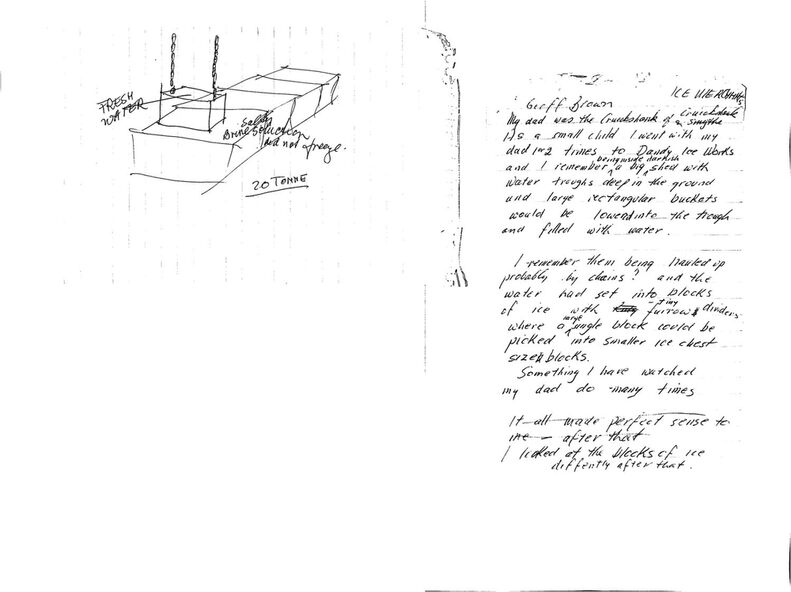 FRESH
WATER
Salty
Brine Solution
did not freeze.
20 TONNE
ICE MERCHANTS
Geoff Brown
My dad was the Cruickshank of Cruickshank
& Smythe
As a small child I went with my
dad 1 or 2 times to Dandy Ice Works
being inside darkish
and I remember a big shed with
water troughs deep in the ground
and large rectangular buckets
would be lowered into the trough
and filled with water.
I remember them being hauled up
probably by chains? and the
water had set into blocks
of ice with tiny furrows dividers
where a large single block could be
picked into smaller ice chest
sized blocks.
Something I have watched
my dad do many times
It all made perfect sense to
me – after that
I looked at the blocks of ice
diffently after that.